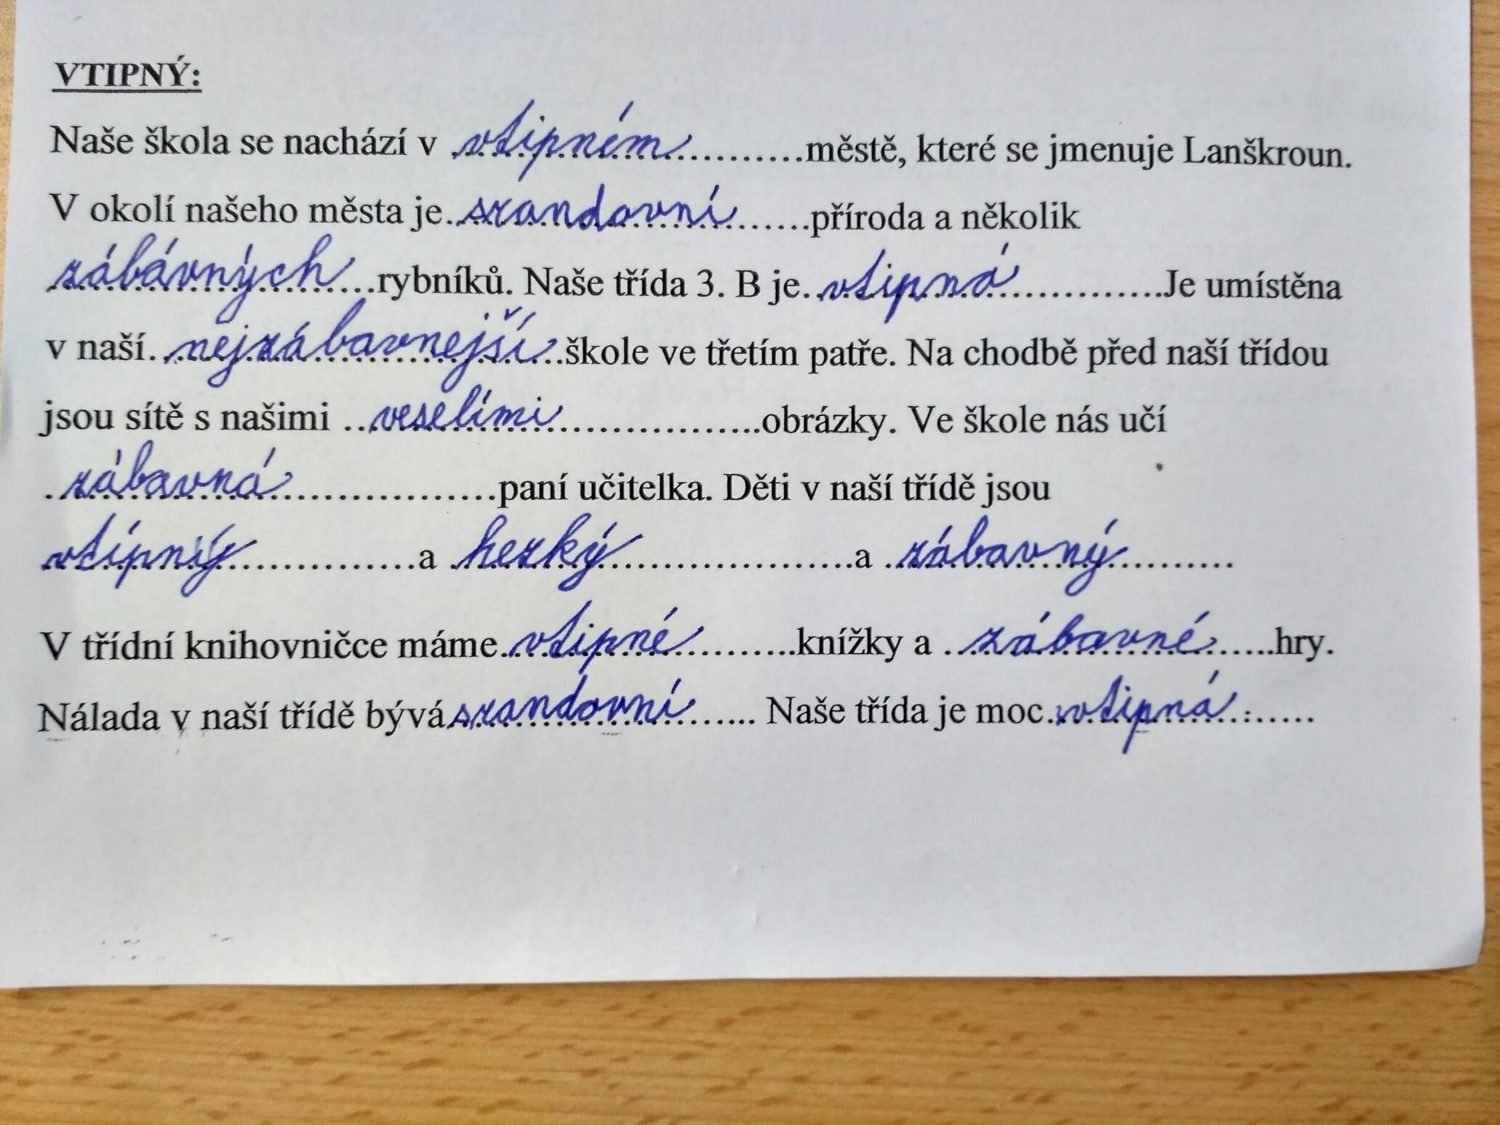 VTIPNÝ:
Naše škola se nachází v vtipném městě, které se jmenuje Lanškroun.
V okolí našeho města je srandovní příroda a několik
zábávných rybníků. Naše třída 3. B je vtipná Je umístěna
v naší nejzábavnejší škole ve třetím patře. Na chodbě před naší třídou
jsou sítě s našimi veselími obrázky. Ve škole nás učí
zábavná paní učitelka. Děti v naší třídě jsou
vtipný a hezký a zábavný
V třídní knihovničce máme vtipné knížky a zábavné hry.
Nálada v naší třídě bývá srandovní Naše třída je moc vtipná